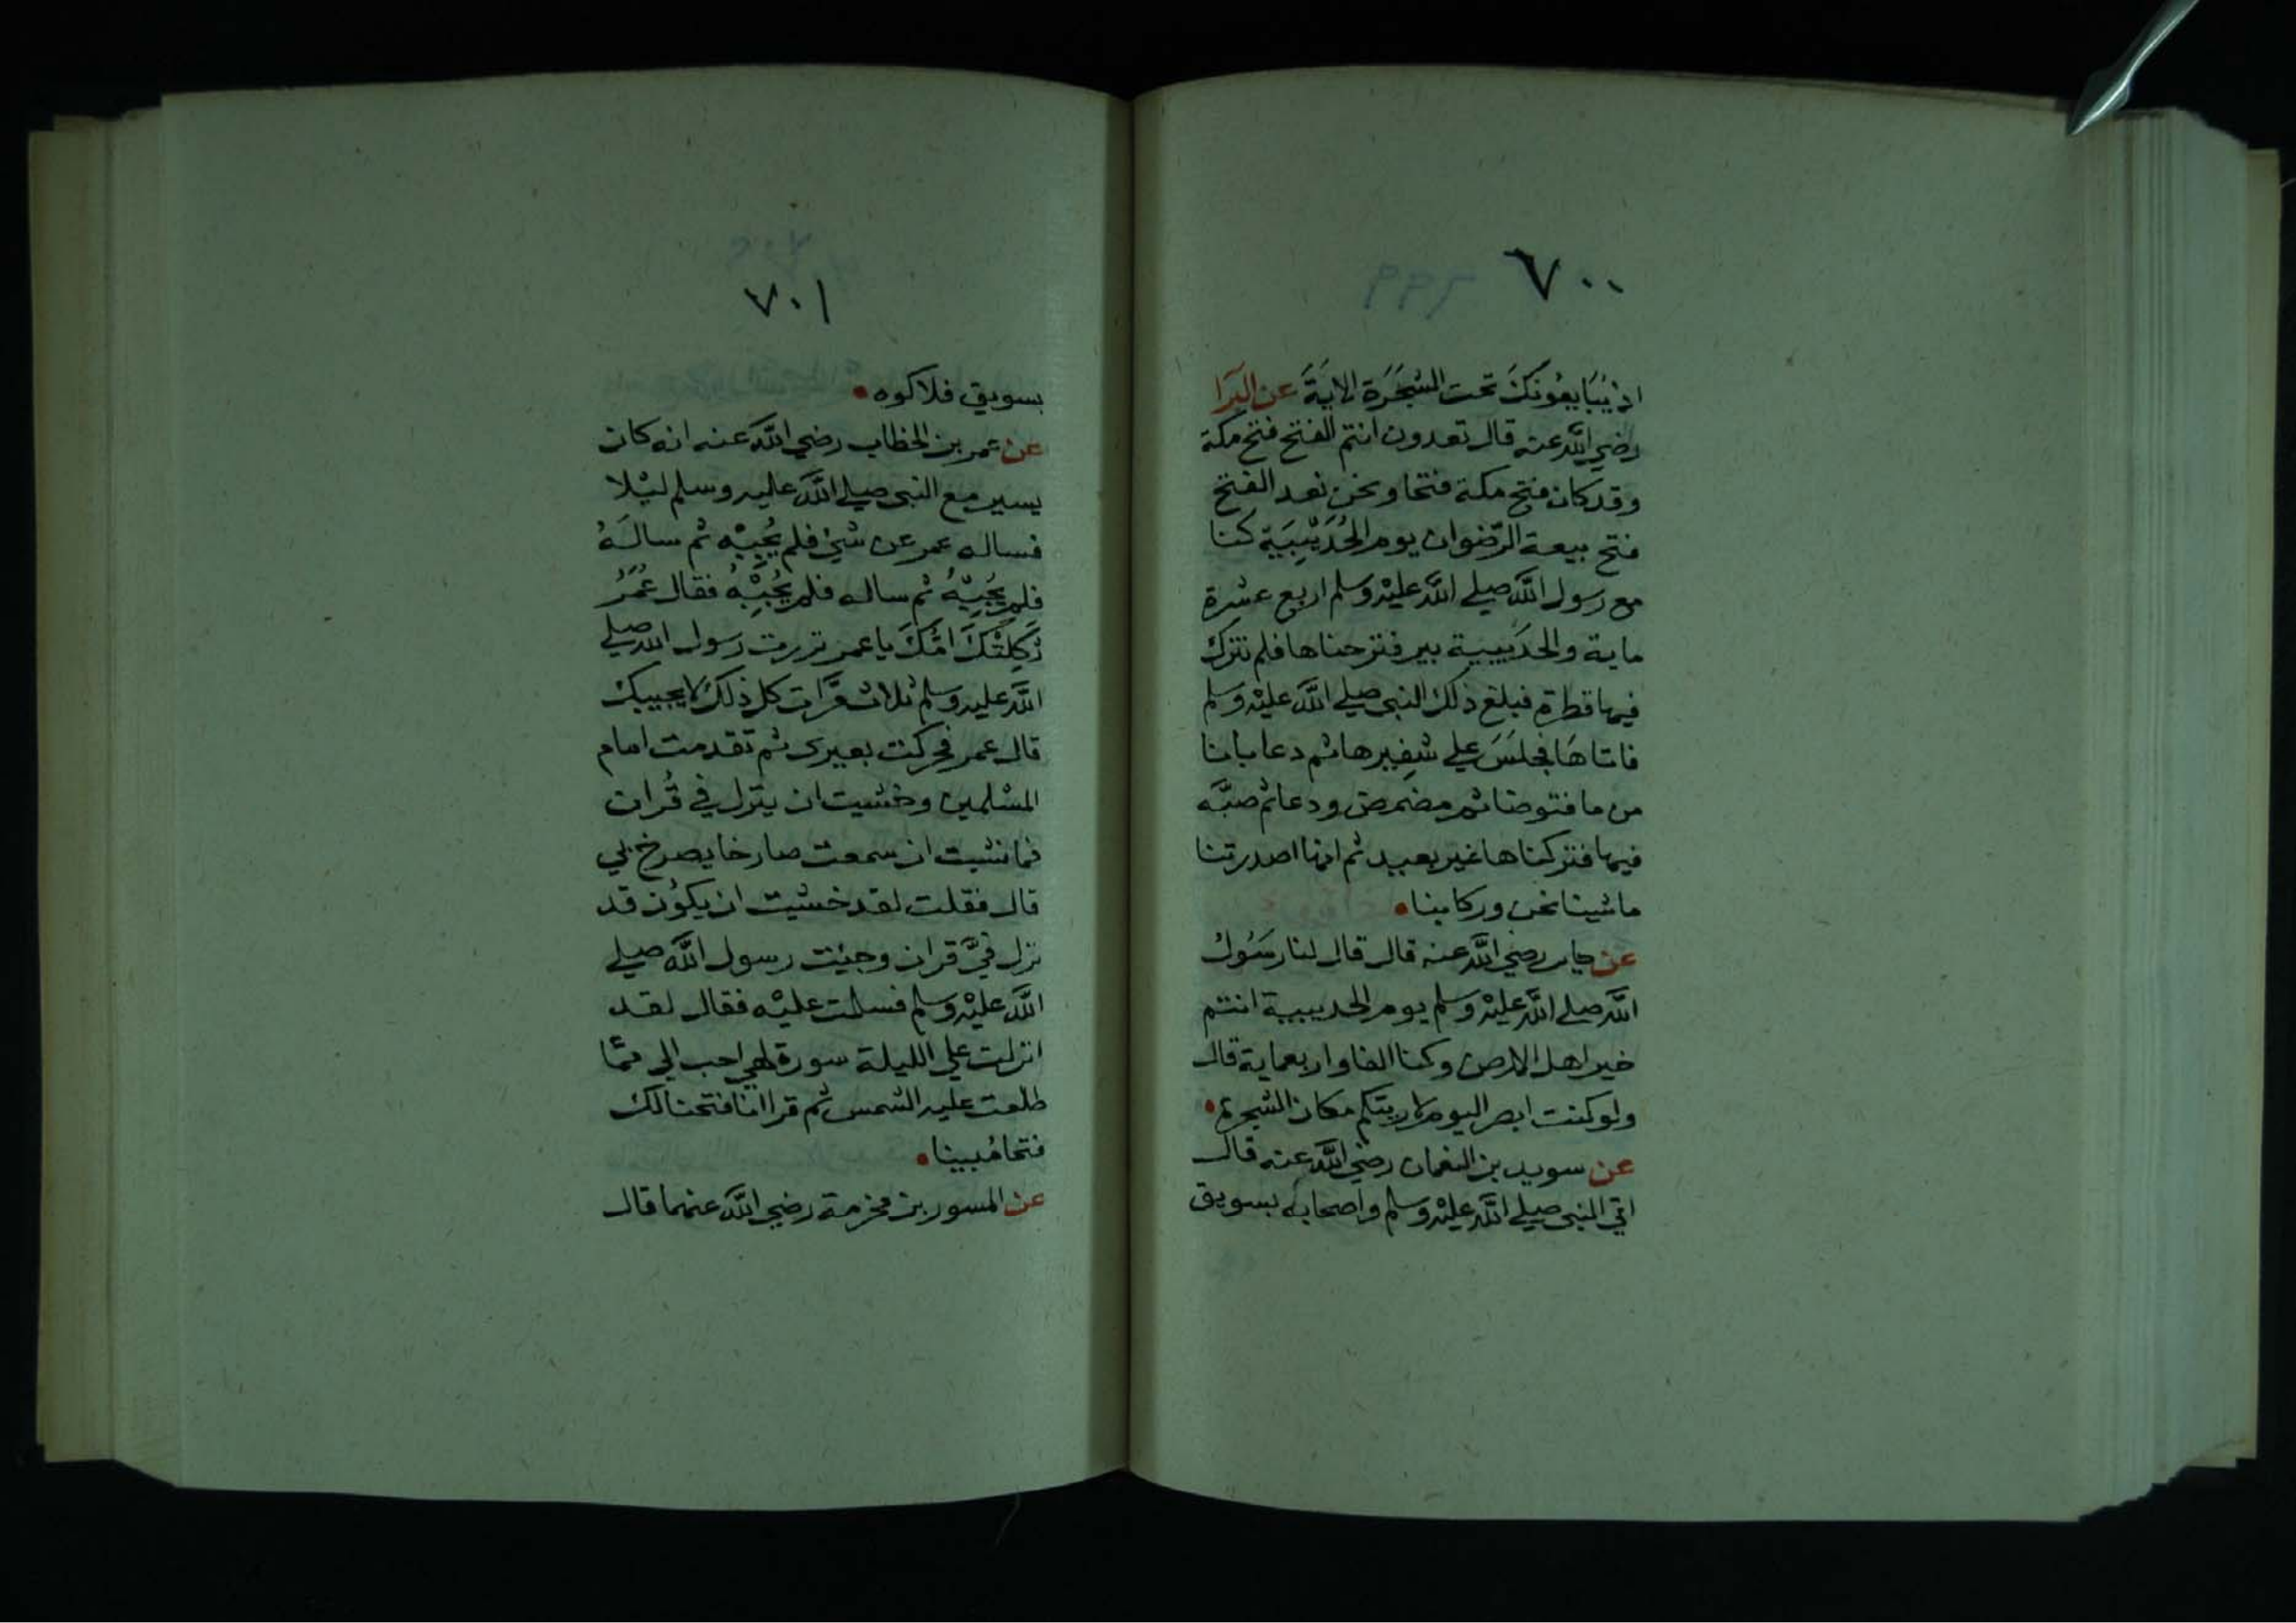 ٧٠٠
اذ يُبَايعُونَكَ تحت الشجَرَة الايَةَ عن البَرَا
رضي اللَّه عنه قال تعدون انتم الفتح فتح مكة
وقد كان فتح مكة فتحا ونحن نعد الفتح
فتح بيعة الرّضوان يوم الحُدَيْبِيَة كنا
مع رسول اللَّه صلى اللَّه عليْه وسلم اربع عشرة
ماية والحدَيبية بير فنزحناها فلم نترك
فيها قطرة فبلغ ذلك النبى صلى اللَّه عليْه وسلم
فاتاهَا فجلسَ على شفِيرها ثم دعا بانا
من ما فتوضا ثم مضمض ودعا ثم صبَّه
فيها فتركناها غير بعيد ثم انها اصدرتنا
ما شينا نحن وركابنا
عن جابر رضي اللَّه عنه قال قال لنا رسَوُل
اللَّه صلى اللَّه عليْه وسلم يوم الحديبية انتم
خير اهل الارض وكنا الفا واربعماية قال
ولو كنت ابصر اليوم لاريتكم مكان الشجرة
عن سويد بن النعمان رضي اللَّه عنه قال
اتي النبى صلى اللَّه عليْه وسلم واصحابه بسويق
٧٠١
بسويق فلاكوه
عن عمر بن الخطاب رضي اللَّه عنه انه كان
يسير مع النبى صلى اللَّه عليه وسلم ليْلا
فساله عمر عن شئ فلم يُجبْه ثم سالَهُ
فلم يُجِبْهُ ثم ساله فلم يُجِبْهُ فقال عُمَرُ
ثكِلتْكَ امّكَ يا عمر نزرت رسول الله صلى
اللَّه عليه وسلم ثلاث مَرّات كل ذلك لا يجيبك
قال عمر فحركت بعيرى ثم تقدمت امام
المسْلمين وخشيت ان ينزل في قُران
فما نشبت ان سمعت صارخا يصرخ بي
قال فقلت لقد خشيت ان يكوُن قد
نزل فيَّ قران وجئت رسول اللَّه صلى
اللَّه عليْه وسلم فسلمت عليْه فقال لقد
انزلت علي الليلة سورة لهي احب الي ممّا
طلعت عليه الشمس ثم قرا انا فتحنا لك
فتحا مُبينا
عن المسور بن مخرمة رضي اللَّه عنهما قال